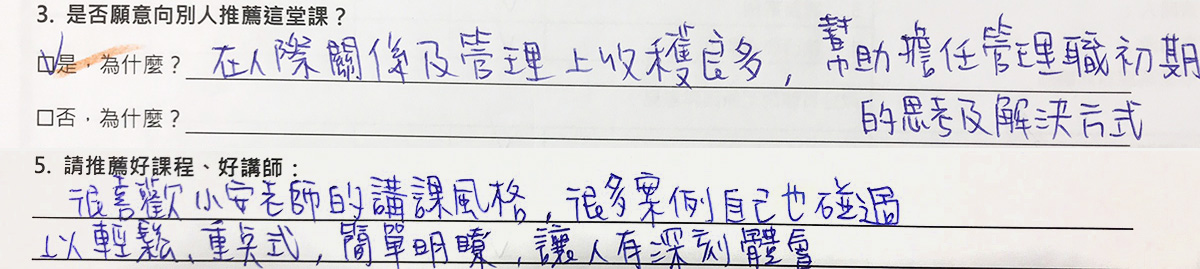 3. 是否願意向別人推薦這堂課？
☑是，為什麼？在人際關係及管理上收穫良多，幫助擔任管理職初期
的思考及解決方式
□否，為什麼？
5. 請推薦好課程、好講師：
很喜歡小安老師的講課風格，很多案例自己也碰過
以輕鬆、重點式，簡單明瞭，讓人有深刻體會